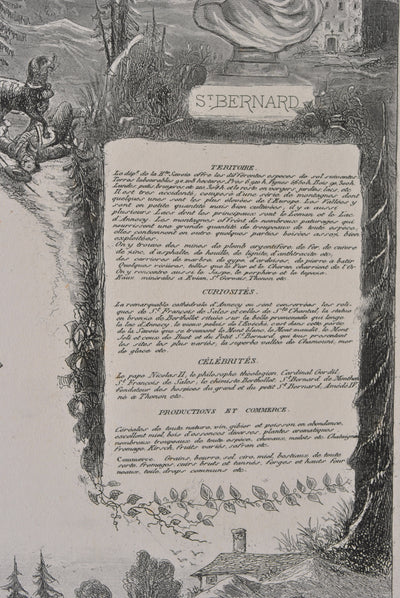 ST BERNARD
TERITOIRE.
Le dépt de la Hte Savoie offre les différentes espèces de sol suivantes
Terres labourables
quelques unes sont les plus élevées de l'Europe. Les Vallées y
sont en petite quantité mais bien cultivées, il y a aussi
plusieurs Lacs dont les principaux sont le Leman et le Lac
d'Annecy. Les montagnes offrent de nombreux paturages qui
nourrissent une grande quantité de troupeaux de toute espèce,
elles contiennent en outre quelques parties boisées assez bien
exploitées.
On y trouve des mines de plomb argentifère, de fer, de cuivre
de zinc, d'asphalte, de houille, de lignite d'anthracite etc.
des carrières de marbre, de gypse, d'ardoises, de pierre à batir
Quelques rivières, telles que le Fier et le Cheran charrient de l'Or
On y rencontre aussi le Jaspe, le porphire et le
Eaux minérales à Evian, St Gervais, Thonon etc.
CURIOSITÉS.
La remarquable cathédrale d'Annecy où sont conservées les reli-
ques de St François de Sales et celles de Ste Chantal la statue
en bronze de Berthollet située sur la belle promenade qui longe
le lac d'Annecy, le vieux palais de l'Evêché, c'est dans cette partie
de la Savoie que se trouvent le Mont blanc, le Mont maudit, le Mont
Joli et ceux du Buet et du Petit St Bernard, qui tous presentent
les sites les plus variés, la superbe vallée de Chamouni, mer
de glace etc.
CÉLÉBRITÉS.
Le pape Nicolas II, le philosophe théologien Cardinal Gerdil
St François de Sales, le chimiste Berthollet, St Bernard de Menthon
fondateur des hospices du grand et du petit St Bernard, Amédée IV
né à Thonon etc.
PRODUCTIONS ET COMMERCE.
Céréales de toute nature, vin, gibier et poisson en abondance,
excellent miel, bois d'essences diverses, plantes aromatiques,
nombreux troupeaux de toute espèce, chevaux, mulets etc. Chataignes
Fromage, Kirsch, Fruits variés, safran etc.
Commerce. Grains, beurre, sel, cire, miel, bestiaux de toute
sorte, fromages, cuirs bruts et tannés, Forges et hauts four
neaux, toile, draps communs etc.